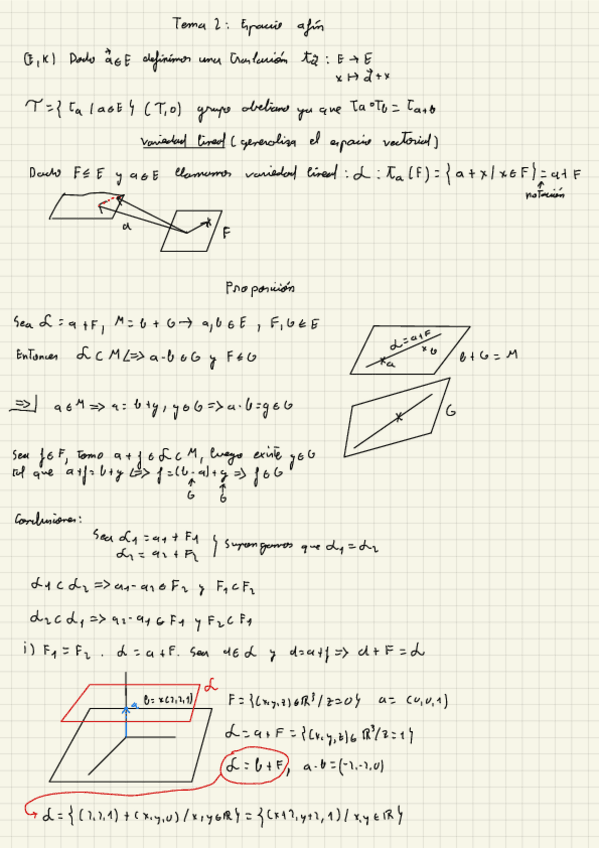 Tema 2: Espacio afín
(E, K) Dado a⃗ ∈ E definimos una traslación τa⃗ : E → E
x ↦ a⃗ + x
T = { τa / a ∈ E } (T, o) grupo abeliano ya que τa ∘ τb = τa+b
variedad lineal (generaliza el espacio vectorial)
Dado F ≤ E y a ∈ E llamamos variedad lineal : L : τa (F) = { a + x / x ∈ F } = a + F
notación
a
F
Proposición
Sea L = a + F, M = b + G → a, b ∈ E , F, G ≤ E
Entonces L ⊂ M <=> a - b ∈ G y F ≤ G
L = a + F
a
b
b + G = M
G
=>| a ∈ M => a = b + y, y ∈ G => a - b = y ∈ G
Sea f ∈ F, tomo a + f ∈ L ⊂ M, luego existe y ∈ G
tal que a + f = b + y <=> f = (b - a) + y => f ∈ G
G G
Conclusiones:
Sea L1 = a1 + F1
L2 = a2 + F2 } supongamos que L1 = L2
L1 ⊂ L2 => a1 - a2 ∈ F2 y F1 ⊂ F2
L2 ⊂ L1 => a2 - a1 ∈ F1 y F2 ⊂ F1
i) F1 = F2 . L = a + F. Sea d ∈ L y d = a + f => d + F = L
L
a
F = { (x, y, z) ∈ R³ / z = 0 } a = (0, 0, 1)
L = a + F = { (x, y, z) ∈ R³ / z = 1 }
L = b + F, a - b = (-7, -7, 0)
L = { (7, 7, 1) + (x, y, 0) / x, y ∈ R } = { (x+7, y+7, 1) / x, y ∈ R }